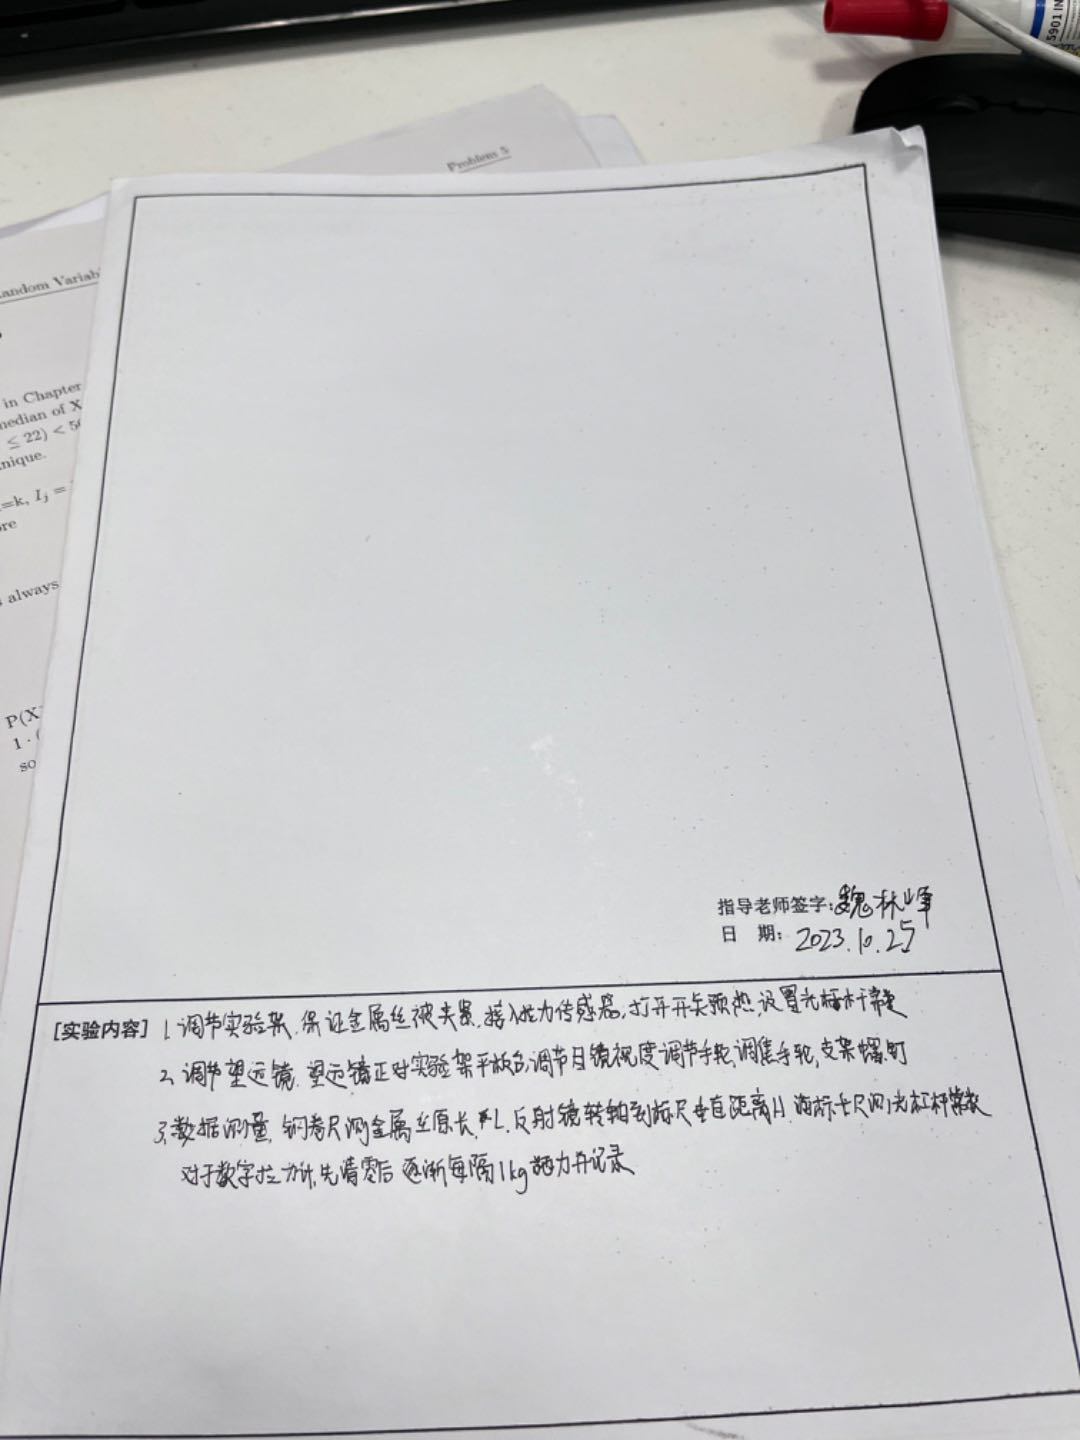 5901 IN
Problem 5
andom Variab
in Chapter
nedian of X
≤ 22) < 5
nique.
=k, I_j =
re
always
P(X
1 · (
so
指导老师签字:魏林峰
日 期: 2023.10.25
[实验内容] 1.调节实验架.保证金属丝被夹紧.接入拉力传感器,打开开关预热.设置光杠杆常数
2.调节望远镜.望远镜正对实验架平板台,调节目镜视度调节手轮,调焦手轮,支架螺钉
3.数据测量.钢卷尺测金属丝原长L.反射镜转轴到标尺垂直距离H.游标卡尺测光杠杆常数
对于数字拉力计.先清零后逐渐每隔1kg施力并记录